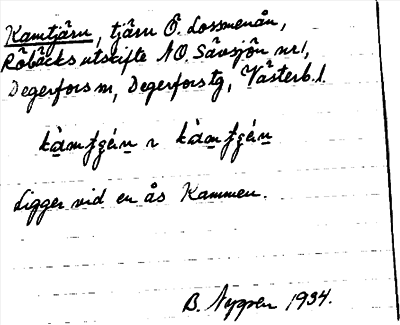 Kamtjärn, tjärn Ö. Lossmenån,
Röbäcks utskifte NO. Sävsjön nr 1,
Degerfors sn, Degerfors tg, Västerb. l.
Ligger vid en ås Kammen.
B. Nygren 1934.